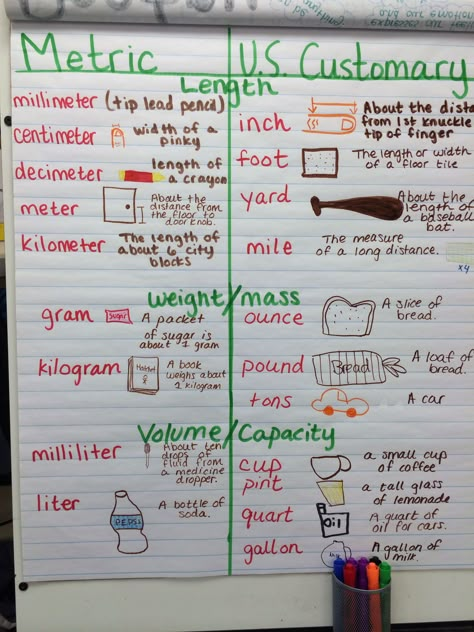 Metric
U.S. Customary
Length
millimeter (tip lead pencil)
centimeter
width of a
pinky
decimeter
length of
a crayon
meter
About the
distance from
the floor to
doorknob.
kilometer
The length of
about 6 city
blocks
inch
About the dista
from 1st knuckle
tip of finger
foot
The length or width
of a floor tile
yard
About the
length of
a baseball
bat.
mile
The measure
of a long distance.
x4
weight/mass
gram
Sugar
A packet
of sugar is
about 1 gram
kilogram
A book
weighs about
1 kilogram
ounce
A slice of
bread.
pound
Bread
A loaf of
bread.
tons
A car
Volume/Capacity
milliliter
About ten
drops of
fluid from
a medicine
dropper.
liter
PEPSI
A bottle of
soda.
cup
a small cup
of coffee
pint
a tall glass
of lemonade
quart
Oil
A quart of
oil for cars.
gallon
A gallon of
milk.